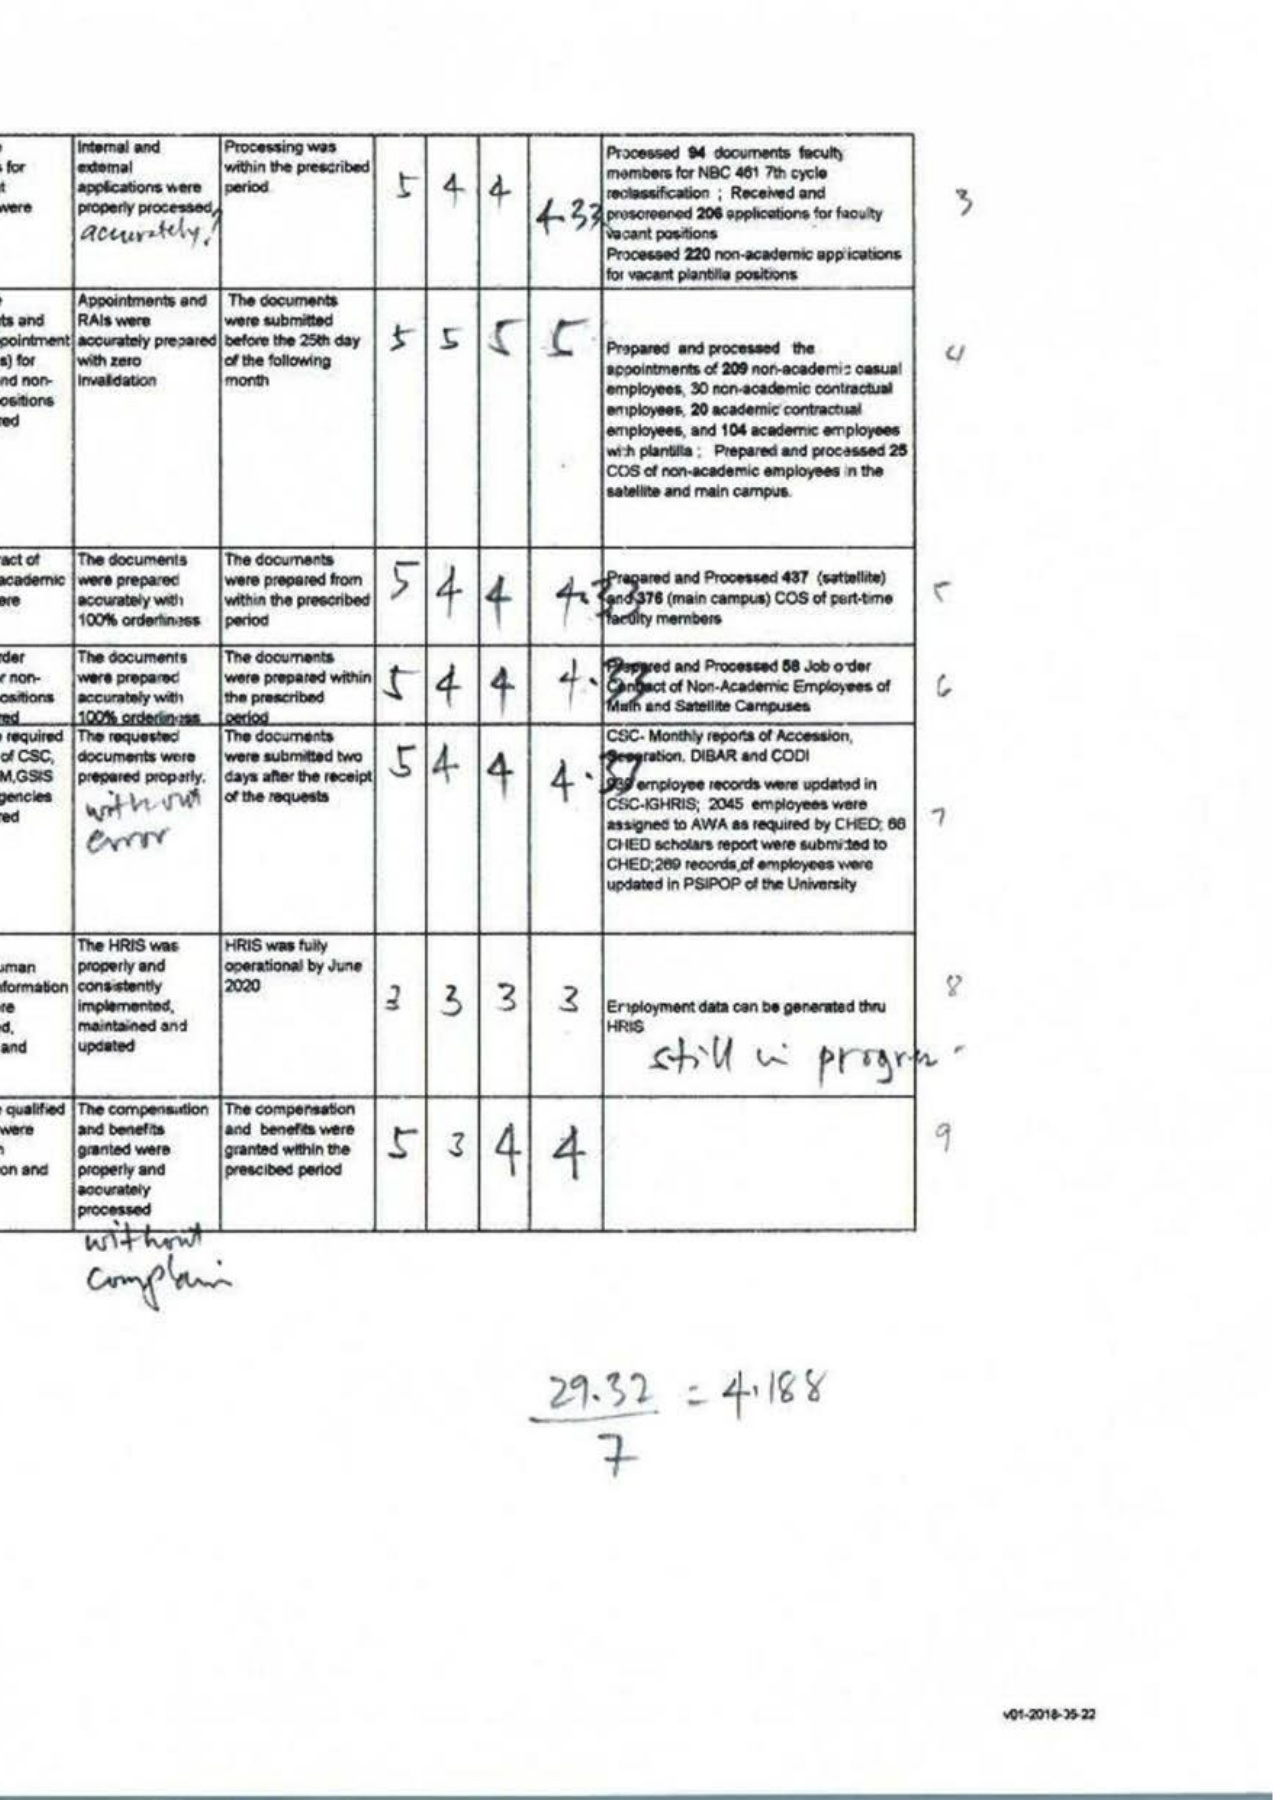 s for
t
were
Internal and
external
applications were
properly processed,
accurately.
Processing was
within the prescribed
period
5 4 4 4.33
Processed 94 documents faculty
members for NBC 461 7th cycle
reclassification ; Received and
prescreened 206 applications for faculty
vacant positions
Processed 220 non-academic applications
for vacant plantilla positions
3
ts and
pointment
s) for
nd non-
ositions
red
Appointments and
RAIs were
accurately prepared
with zero
Invalidation
The documents
were submitted
before the 25th day
of the following
month
5 5 5 5
Prepared and processed the
appointments of 209 non-academic casual
employees, 30 non-academic contractual
employees, 20 academic contractual
employees, and 104 academic employees
with plantilla ; Prepared and processed 25
COS of non-academic employees in the
satellite and main campus.
4
ract of
academic
ere
The documents
were prepared
accurately with
100% orderliness
The documents
were prepared from
within the prescribed
period
5 4 4 4.33
Prepared and Processed 437 (sattellite)
and 376 (main campus) COS of part-time
faculty members
5
rder
r non-
ositions
red
The documents
were prepared
accurately with
100% orderliness
The documents
were prepared within
the prescribed
period
5 4 4 4.33
Prepared and Processed 58 Job order
Contract of Non-Academic Employees of
Main and Satellite Campuses
6
required
of CSC,
M,GSIS
gencies
red
The requested
documents were
prepared properly.
without
error
The documents
were submitted two
days after the receipt
of the requests
5 4 4 4.33
CSC- Monthly reports of Accession,
Separation, DIBAR and CODI
employee records were updated in
CSC-IGHRIS; 2045 employees were
assigned to AWA as required by CHED; 66
CHED scholars report were submitted to
CHED;269 records of employees were
updated in PSIPOP of the University
7
uman
nformation
re
d,
and
The HRIS was
properly and
consistently
implemented,
maintained and
updated
HRIS was fully
operational by June
2020
3 3 3 3
Employment data can be generated thru
HRIS
still in progress
8
qualified
were
n
on and
The compensation
and benefits
granted were
properly and
accurately
processed
without
complain
The compensation
and benefits were
granted within the
prescibed period
5 3 4 4
9
29.32 = 4.188
7
v01-2018-05-22